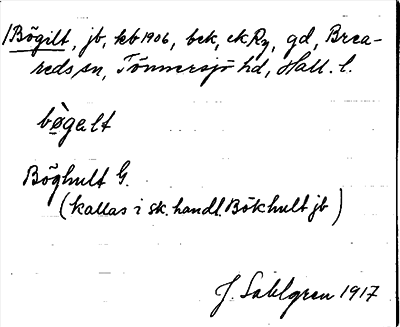 /Bögilt, jb, kb 1906, bek, ek Rz, gd, Brea-
redssn, Tönnersjö hd, Hall. l.
bògalt
Böghult G.
(kallas i sk. handl. Bökhult jb)
J. Sahlgren 1917